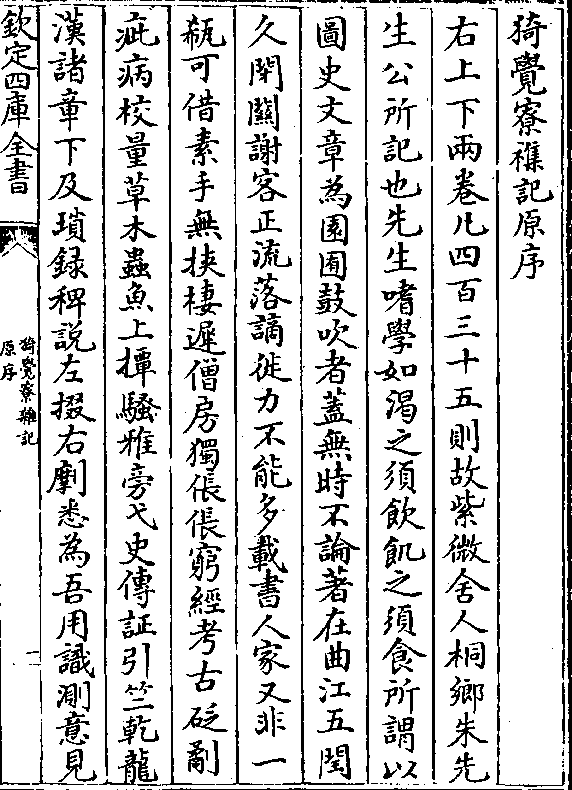 猗覺寮襍記原序
右上下兩卷凡四百三十五則故紫微舍人桐鄉朱先
生公所記也先生嗜學如渴之須飲飢之須食所謂以
圖史文章為園囿鼓吹者蓋無時不論著在曲江五閏
久閉關謝客正流落謫徙力不能多載書人家又非一
瓻可借素手無挾棲遲僧房獨倀倀窮經考古砭劀
疵病校量草木蟲魚上撢騷雅旁弋史傳証引竺乾龍
漢諸章下及瑣録稗説左掇右劘悉為吾用識測意見
欽定四庫全書
猗覺寮雜記
原序
一